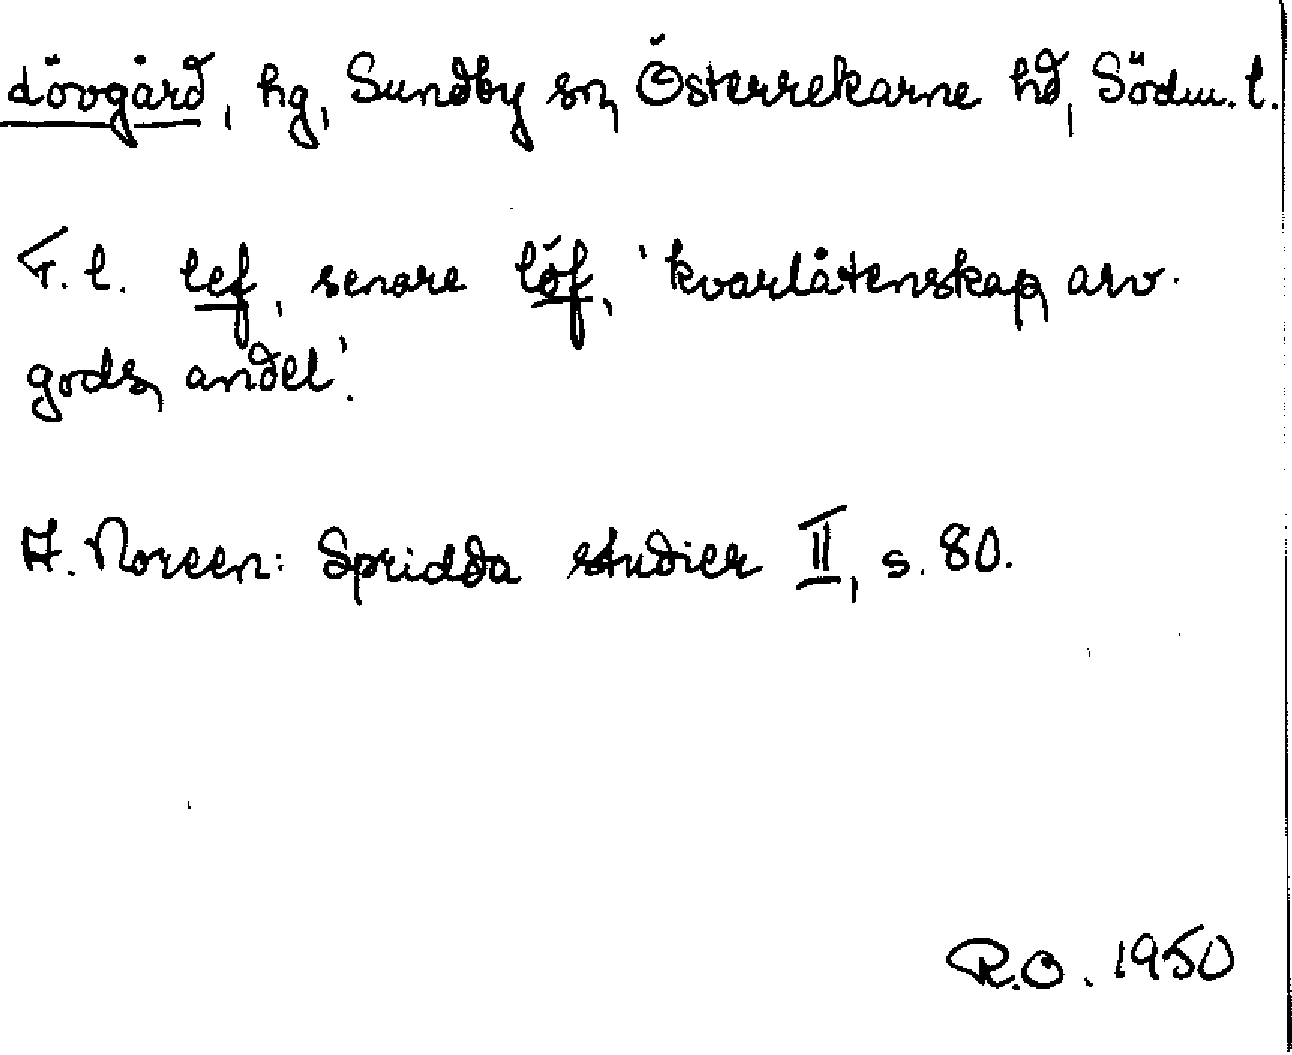 Lövgärd, hg, Sundby sn, Österrekarne hd, Södm. l.
F. l. lef, senare löf, 'kvarlåtenskap, arv-
gods, andel'.
A. Noreen: Spridda studier II, s. 80.
R.O. 1950